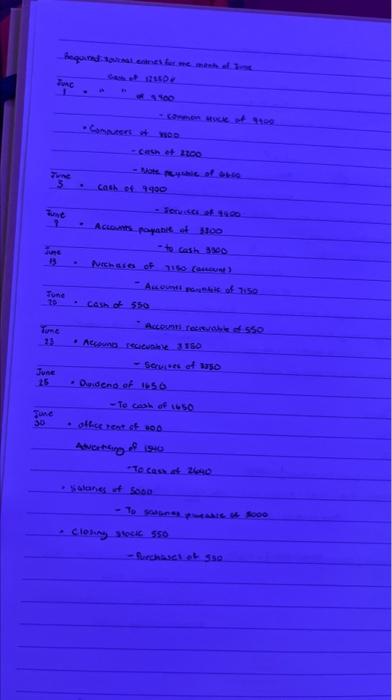 Required: Journal entries for the month of June
Cash of 12850
June
1 • " " of 9900
- Common stock of 9900
• Computers of 8800
- Cash of 2200
- Note payable of 6600
June
5 • Cash of 9900
- Services of 9900
June
9 • Accounts payable of 3300
- to cash 3300
June
19 • Purchases of 7150 (account)
- Accounts payable of 7150
June
20 • Cash of 550
- Accounts recievable of 550
June
23 • Accounts recievable 3850
- Services of 3850
June
25 • Dividend of 1650
- To cash of 1650
June
30 • office rent of 800
Advertising of 1840
- To cash of 2640
• Salaries of 5000
- To salaries payable of 5000
• Closing stock 550
- Purchases of 550